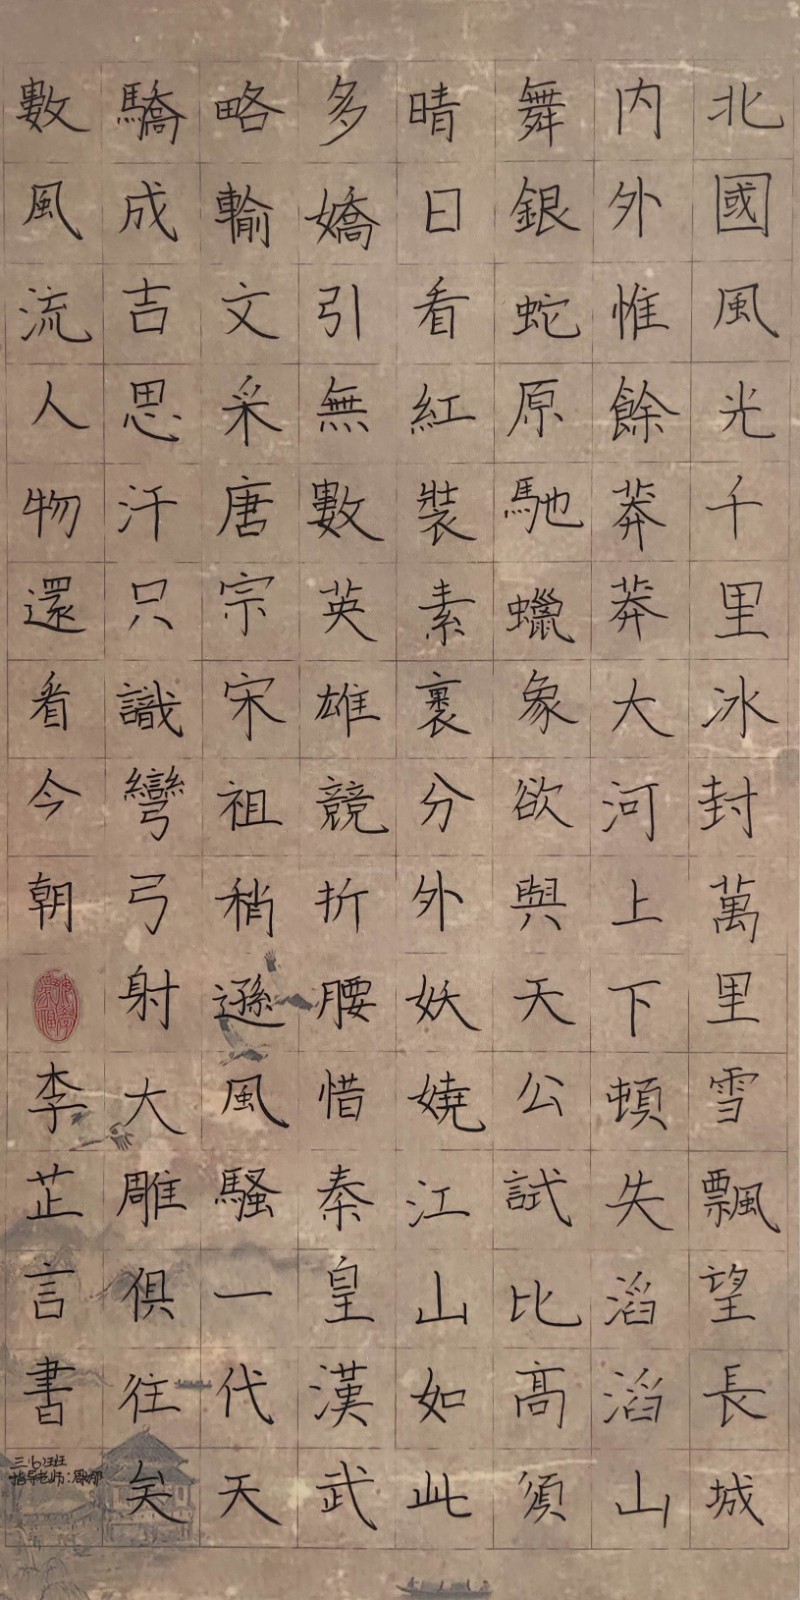 北國風光千里冰封萬里雪飄望長城
内外惟餘莽莽大河上下頓失滔滔山
舞銀蛇原馳蠟象欲與天公試比高須
晴日看紅裝素裹分外妖嬈江山如此
多嬌引無數英雄競折腰惜秦皇漢武
略輸文采唐宗宋祖稍遜風騷一代天
驕成吉思汗只識彎弓射大雕俱往矣
數風流人物還看今朝
李芷言書
三b班
指导老师: